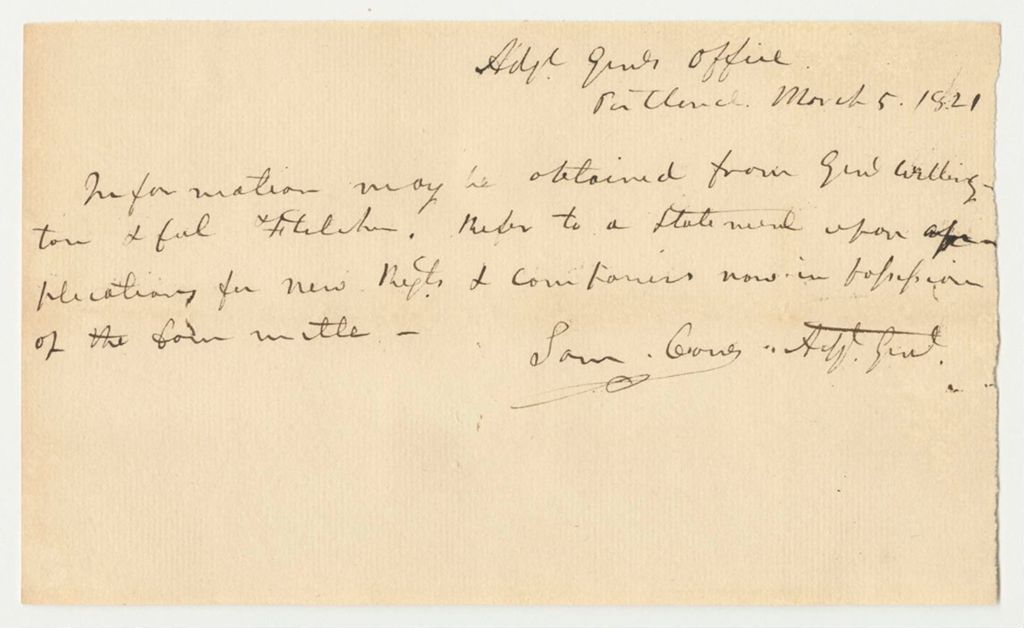 Adjt. Genls Office.
Portland. March 5. 1821
Information may be obtained from Genl Welling-
ton & Fletcher. Refer to a Statement upon ap-
plications for new Regts & Companies now in possession
of the
Sam. Cony. Adjt. Genl.